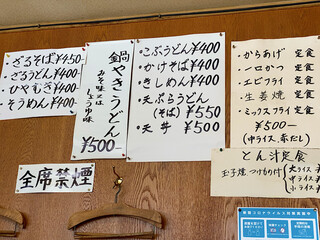 ・ざるそば¥450
・ざるうどん¥400
・ひやむぎ¥400
・そうめん¥400
鍋やきうどん
みそ味又は
しょうゆ味
¥500―
・こぶうどん¥400
・かけそば¥400
・きしめん¥400
・天ぷらうどん
(そば)¥550
・天丼¥500
・からあげ定食
・一口かつ定食
・エビフライ定食
・生姜焼定食
・ミックスフライ定食
¥800―
(中ライス、赤だし)
とん汁定食
玉子焼
つけもの付
大ライス
中ライス
小ライス
全席禁煙